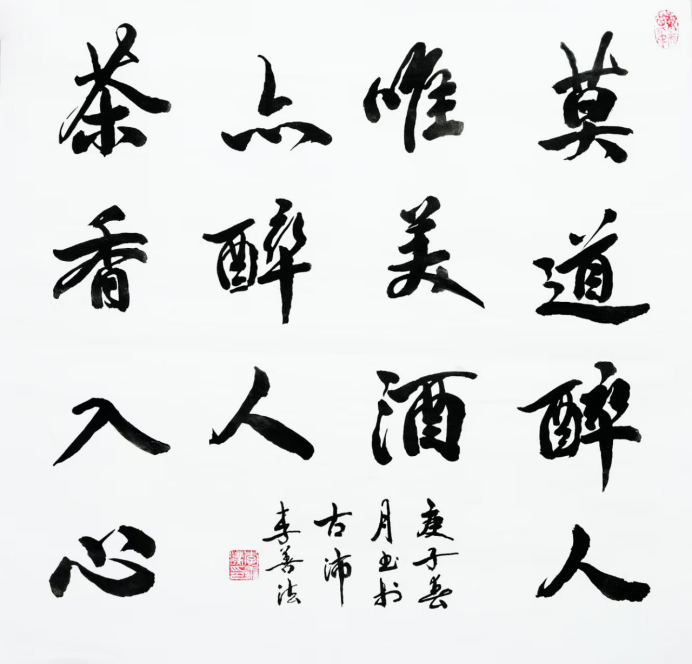 莫道醉人
唯美酒
茶香入心
亦醉人
庚子春
月书于
古沛
李善法